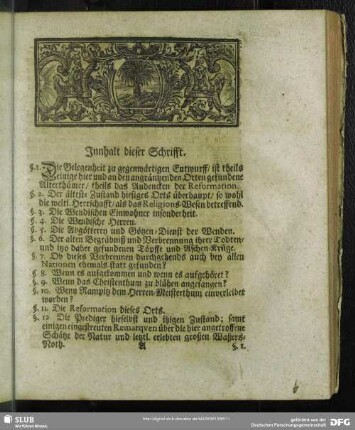 Innhalt dieser Schrifft.
§. 1. Die Gelegenheit zu gegenwärtigen Entwurff/ ist theils
einige hier und an den angräntzenden Orten gefundene
Alterthümer/ theils das Andencken der Reformation.
§. 2. Der älteste Zustand hiesiges Orts überhaupt/ so wohl
die weltl. Herrschafft/ als das Religions-Wesen betreffend.
§. 3. Die Wendischen Einwohner insonderheit.
§. 4. Die Wendische Herren.
§. 5. Die Abgötterey und Götzen-Dienst der Wenden.
§. 6. Der alten Begräbniß und Verbrennung ihrer Todten/
und itzo daher gefundenen Töpffe und Aschen-Krüge.
§. 7. Ob dieses Verbrennen durchgehends auch bey allen
Nationen ehemals statt gefunden?
§. 8. Wenn es aufgekommen und wenn es aufgehöret?
§. 9. Wenn das Christenthum zu blühen angefangen?
§. 10. Wenn Rampitz dem Herren-Meisterthum einverleibet
worden?
§. 11. Die Reformation dieses Orts.
§. 12. Die Prediger hieselbst und itzigen Zustand; samt
einigen eingestreuten Remarqven über die hier angetroffene
Schätze der Natur und letzl. erlebten grossen Wassers-
Noth.
A
§. 1.
SLUB
Wir führen Wissen.
gefördert von der
Deutschen Forschungsgemeinschaft
DFG